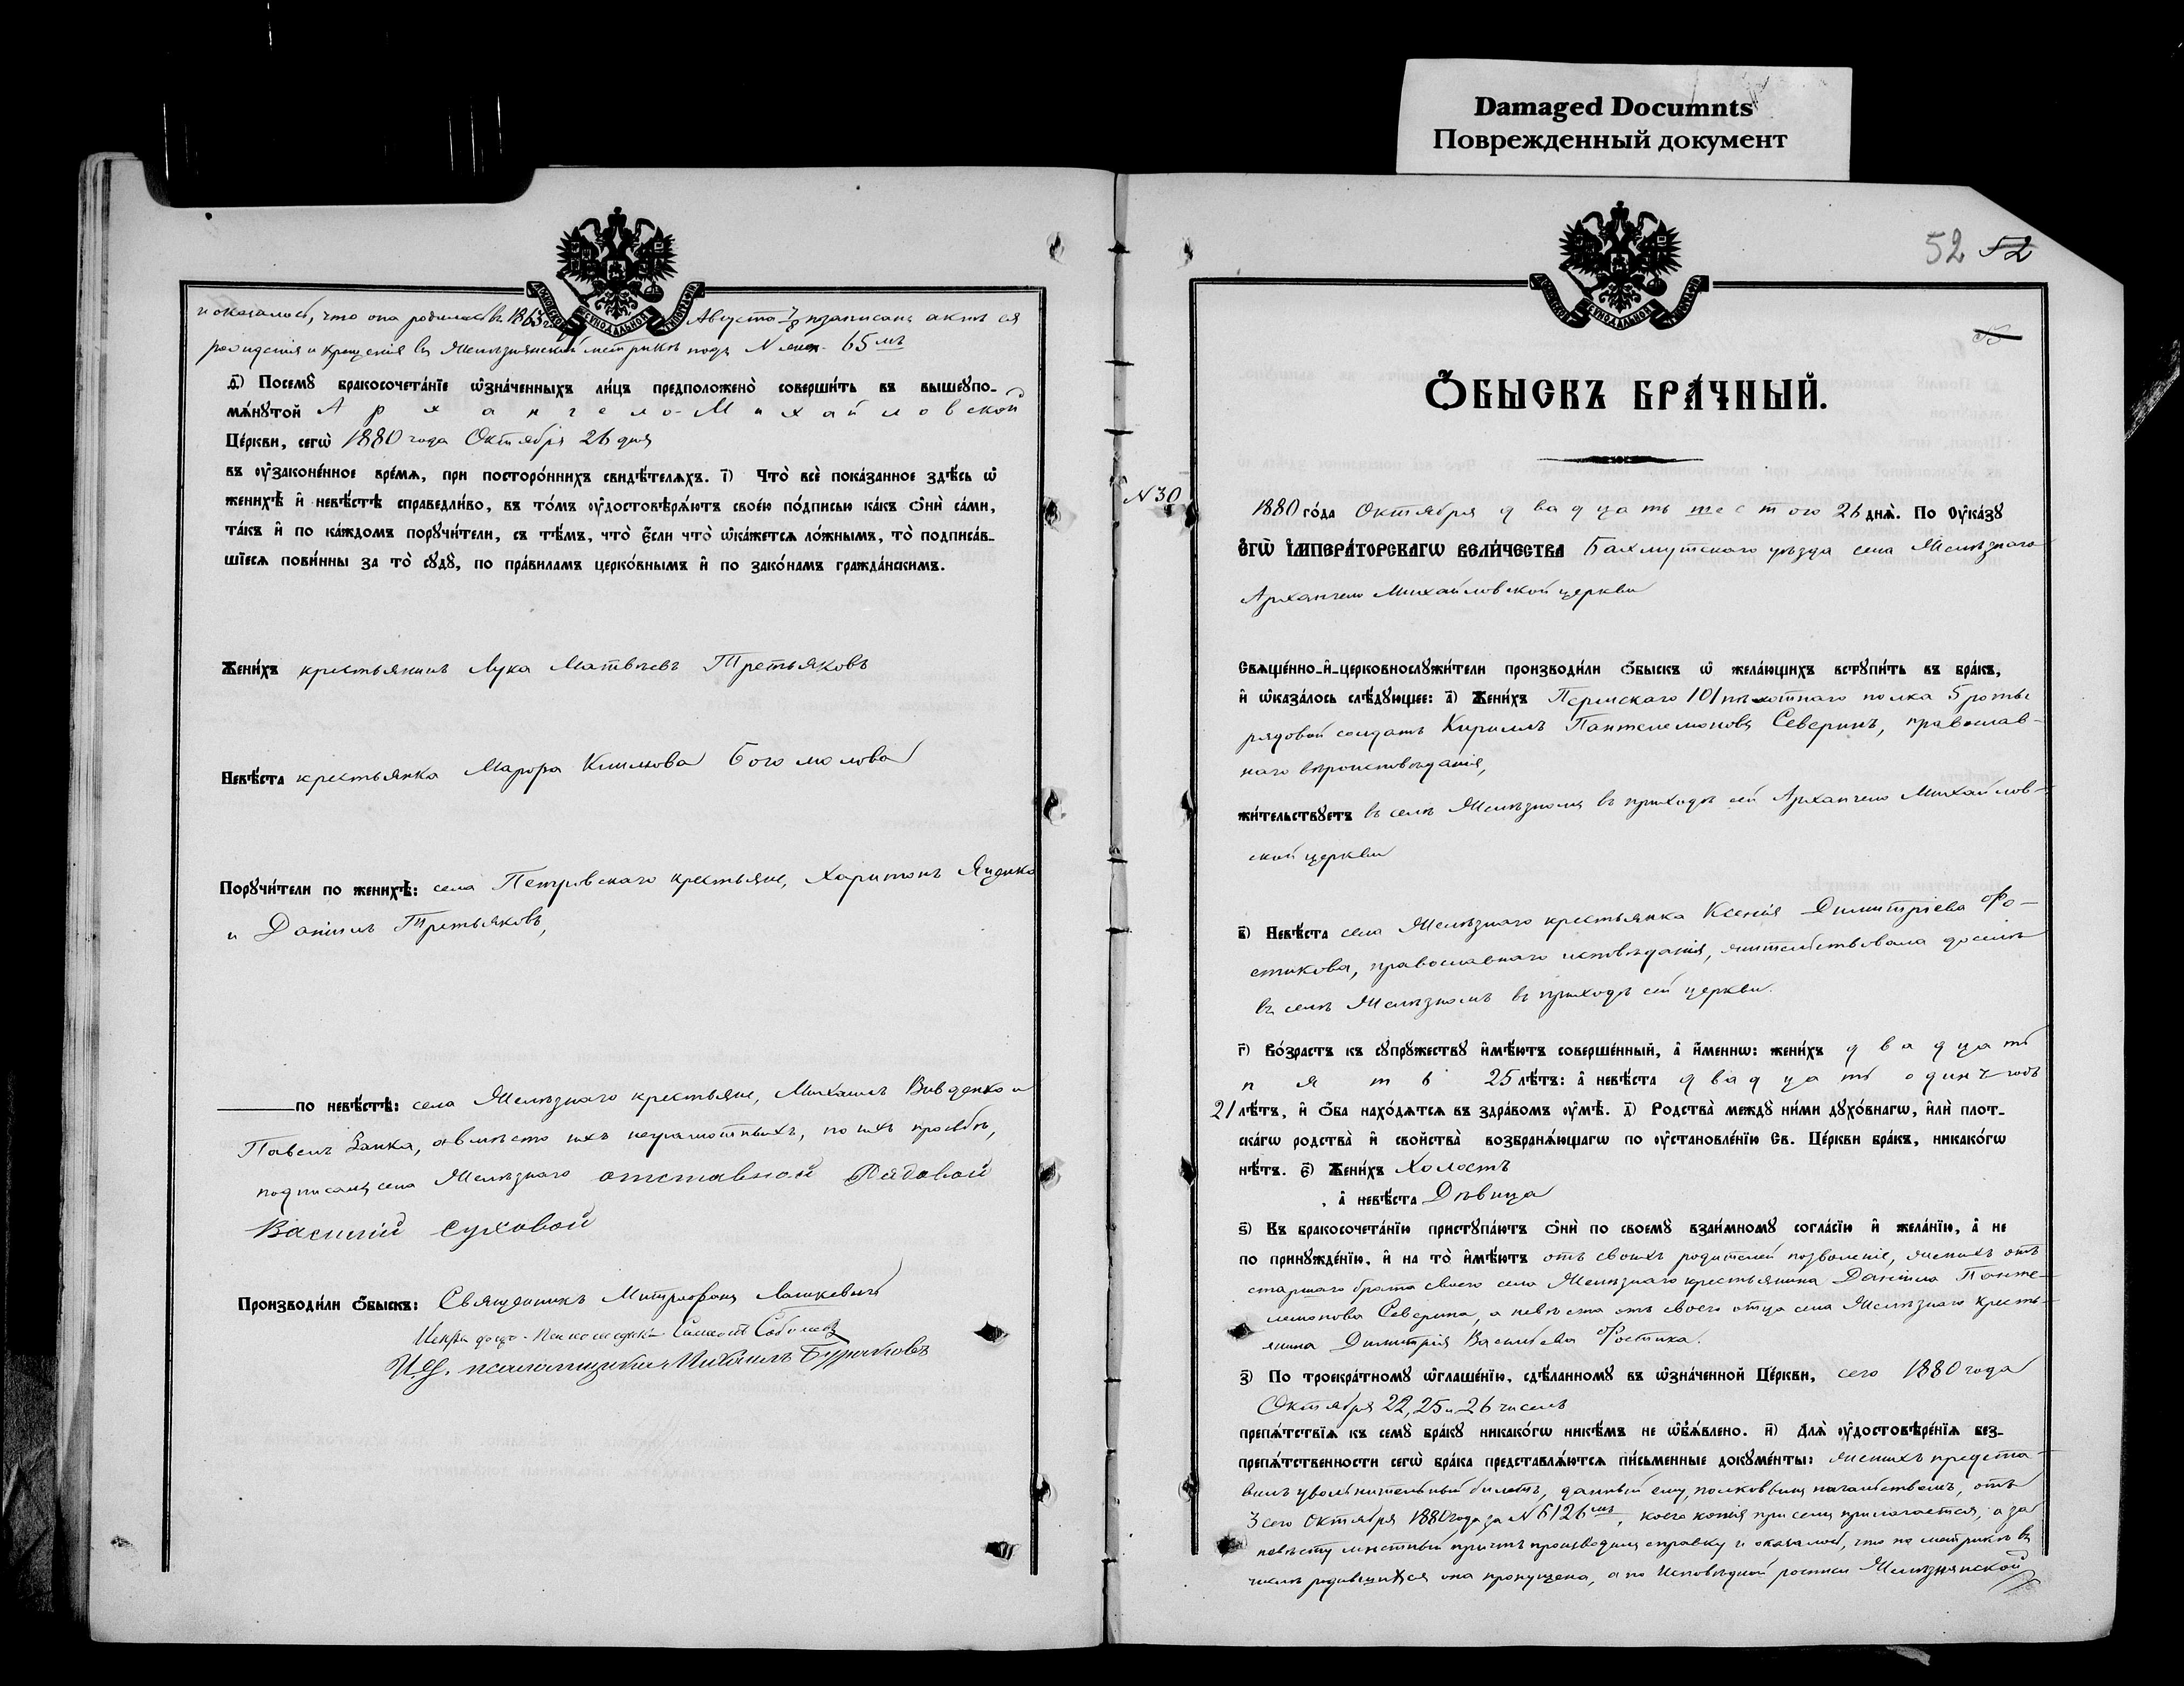 Damaged Documnts
Поврежденный документ
и оказалось, что она родилась въ 1863 г. Августа записанъ актъ ея
рожденія и крещенія въ Желѣзнянской метрикѣ подъ N 65мъ
д҃) Посемꙋ бракосочета́нїе ѡ҆зна́ченныхъ ли́цъ предположено̀ соверши́ть въ вышеꙋпо-
мѧ́нꙋтой Архангело-Михайловской
Це́ркви, сегѡ̀ 1880 года Октября 26 дня
въ ᲂу҆законе́нное вре́мѧ, при посторо́ннихъ свидѣ́телѧхъ. і҃) Что̀ всѐ пока́занное здѣ́сь ѡ҆
женихѣ̀ и҆ невѣ́стѣ справедли́во, въ то́мъ ᲂу҆достовѣрѧ́ютъ свое́ю по́дписью ка́къ ѻ҆нѝ са́ми,
та́къ и҆ по ка́ждомъ порꙋчи́тели, съ тѣ́мъ, что̀ є҆́сли что̀ ѡ҆ка́жетсѧ ло́жнымъ, то̀ подписа́в-
шїесѧ пови́нны за то̀ сꙋдꙋ̀, по пра́виламъ церко́внымъ и҆ по зако́намъ гражда́нскимъ.
Жени́хъ крестьянинъ Лука Матвѣевъ Третьяковъ
Невѣ́ста крестьянка Марфа Климова Богомолова
Порꙋчи́тели по женихѣ̀: села Петровскаго крестьяне, Харитонъ Яценко
и Даніилъ Третьяковъ,
по невѣ́стѣ: села Желѣзнаго крестьяне, Михаилъ Вивденко и
Павелъ Заика, а вмѣсто ихъ неграмотныхъ, по ихъ просьбѣ,
подписалъ села Желѣзнаго отставной Рядовой
Василій Суховой
Производи́ли ѻ҆́быскъ: Священникъ Митрофанъ Лашкевичъ
Соболевъ
И. д. псаломщика Михаилъ Бурчаковъ
52 52
Ѻ҆́БЫСКЪ БРА́ЧНЫЙ.
N 30
1880 го́да Октября двадцать шестого 26 днѧ̀. По Оу҆ка́зꙋ
Є҆гѡ̀ І҆мпера́торскагѡ Вели́чества Бахмутскаго уѣзда села Желѣзнаго
Архангело Михайловской церкви
Свѧще́нно-и҆-церковнослꙋжи́тели производи́ли ѻ҆́быскъ ѡ҆ жела́ющихъ встꙋпи́ть въ бра́къ,
и҆ ѡ҆каза́лось слѣ́дꙋющее: а҃) Жени́хъ Пермскаго 101 пѣхотнаго полка 5 роты
рядовой солдатъ Кириллъ Пантелемоновъ Северинъ, православ-
наго вѣроисповѣданія,
жи́тельствꙋетъ въ селѣ Желѣзномъ въ приходѣ сей Архангело Михайлов-
ской церкви
в҃) Невѣ́ста села Желѣзнаго крестьянка Ксенія Димитріева Фо-
стикова, православнаго исповѣданія, жительствовала доселѣ
въ селѣ Желѣзномъ въ приходѣ сей церкви.
г҃) Во́зрастъ къ сꙋпрꙋ́жествꙋ и҆мѣ́ютъ соверше́нный, а҆ и҆́меннѡ: жени́хъ двадцать
пять 25 лѣ́тъ: а҆ невѣ́ста двадцать одинъ годъ
21 лѣ́тъ, и҆ ѻ҆́ба нахо́дѧтсѧ въ здра́вомъ ᲂу҆мѣ̀. д҃) Родства̀ междꙋ̀ ни́ми дꙋхо́внагѡ, и҆лѝ плот-
ска́гѡ родства̀ и҆ свойства̀ возбранѧ́ющагѡ по ᲂу҆становле́нїю Св. Це́ркви бра́къ, никако́гѡ
нѣ́тъ. є҃) Жени́хъ Холостъ
, а҆ невѣ́ста Дѣвица
ѕ҃) Въ бракосочета́нїю пристꙋпа́ютъ ѻ҆нѝ по своемꙋ̀ взаи́мномꙋ согла́сїю и҆ жела́нїю, а҆ не
по принꙋжде́нїю, и҆ на то̀ и҆мѣ́ютъ отъ своихъ родителей позволеніе, женихъ отъ
старшаго брата своего села Желѣзнаго крестьянина Даніила Панте-
лемонова Северина, а невѣста отъ своего отца села Желѣзнаго кресть-
янина Димитрія Васильева Фостика.
з҃) По троекра́тномꙋ ѡ҆глаше́нїю, сдѣ́ланномꙋ въ ѡ҆зна́ченной Це́ркви, сего 1880 года
Октября 22, 25 и 26 числъ
препѧ́тствїѧ къ семꙋ̀ бра́кꙋ никако́гѡ никѣ́мъ не ѡ҆б̾ѧ́влено. и҃) Длѧ̀ ᲂу҆достовѣре́нїѧ без-
препѧ́тственности сегѡ̀ бра́ка представлѧ́ютсѧ пи́сьменные докꙋме́нты: женихъ предста-
вилъ увольнительный билетъ, данный ему, полковымъ начальствомъ, отъ
3 сего Октября 1880 года за N 6126мъ, коего копія при семъ прилагается, а за
невѣсту мѣстный причтъ производилъ справку и оказалось, что по метрикѣ въ
числѣ родившихся она пропущена, а по Исповѣдной росписи Желѣзнянской